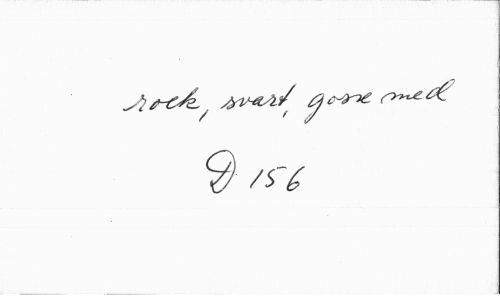 rock, svart, gosse med
D 156